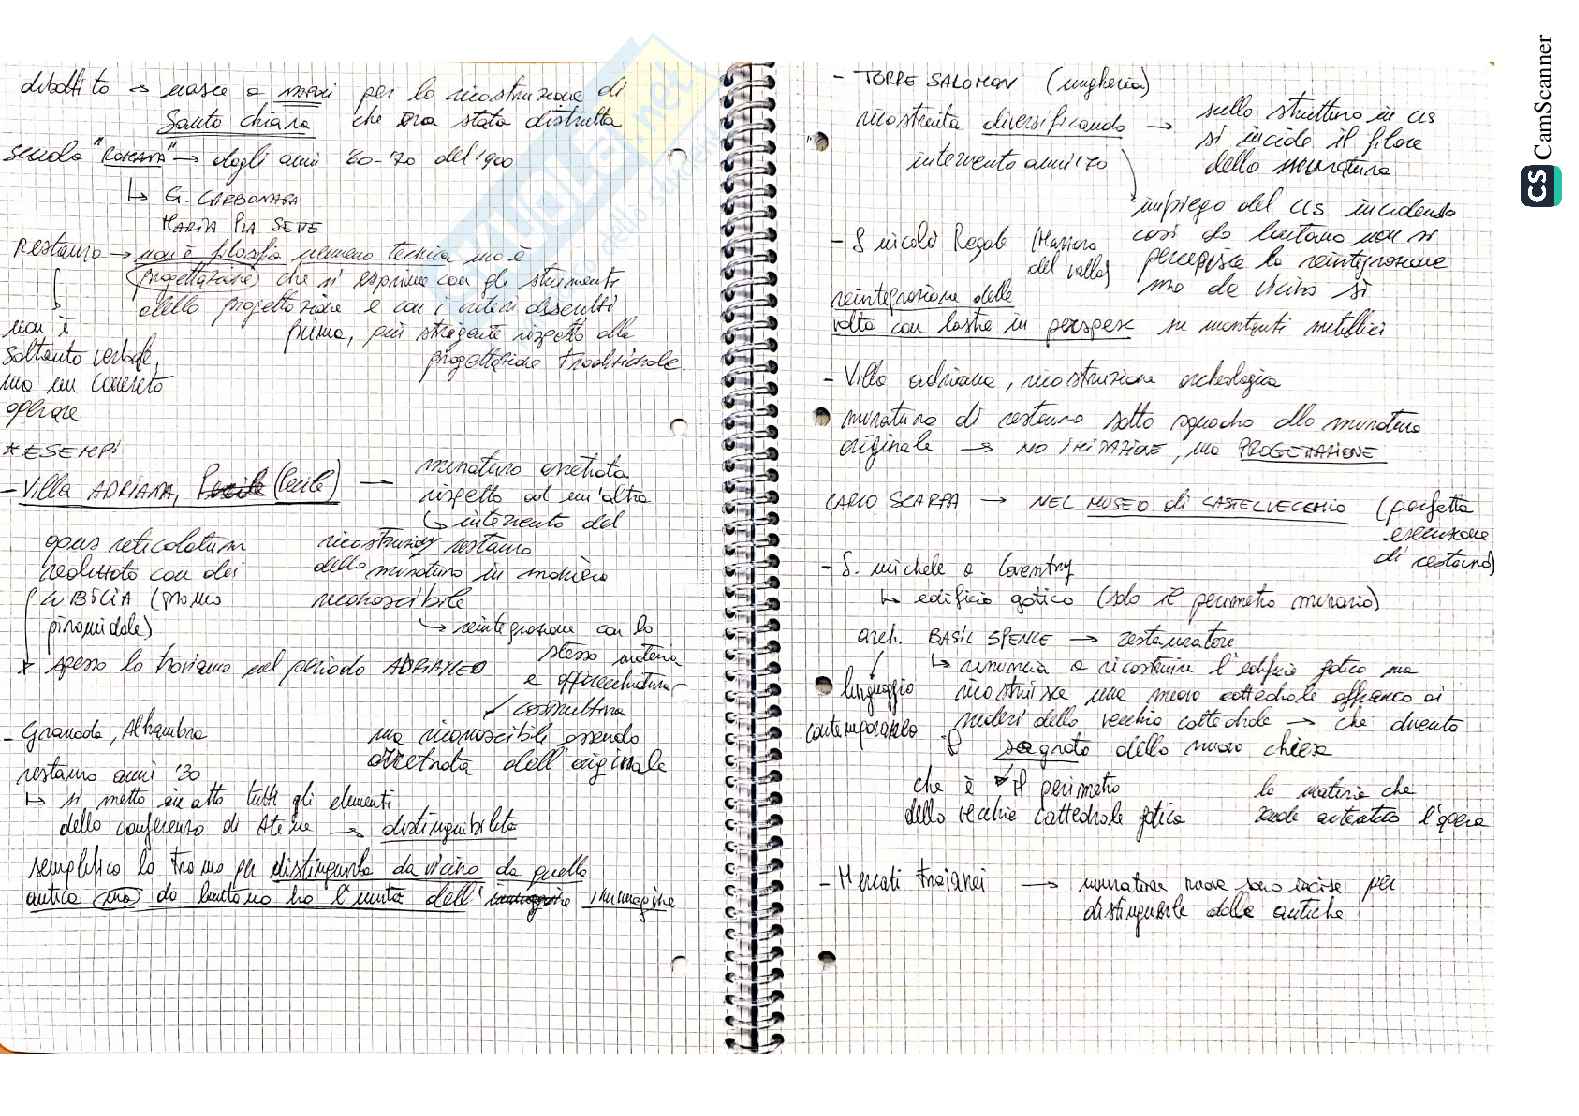 dibattito → nasce a NAPOLI per la ricostruzione di
Santa chiara che era stata distrutta
scuola "ROMANA" → dagli anni 60-70 del 1900
↳ G. CARBONARA
MARIA PIA SETTE
Restauro → non è filosofia nemmeno tecnica ma è
progettazione che si esprime con gli strumenti
della progettazione e con i criteri descritti
prima, più stringente rispetto alla
progettazione tradizionale
non è
soltanto verbale,
ma un concreto
operare
* ESEMPI
- Villa ADRIANA, Pecile (Pecile) — muratura arretrata
rispetto ad un'altra
↳ intervento del
restauro
opus reticolatum
realizzato con dei
CUBILIA (tronco
piramidale)
ricostruzione
della muratura in maniera
riconoscibile
↳ reintegrazione con la
stessa materia
e apparecchiatura
costruttiva
* spesso lo troviamo nel periodo ADRIANEO
ma riconoscibile essendo
arretrata dell'originale
- Granada, Alhambra
restauro anni '30
↳ si mette in atto tutti gli elementi
della conferenza di Atene → distinguibilità
semplifico la trama per distinguerla da vicino da quella
antica ma da lontano ho l'unità dell' immagine
- TORRE SALOMON (ungheria)
ricostruita diversificando → sulla struttura in cls
si incide il filare
della muratura
intervento anni '70
impiego del cls incidendo
così da lontano non si
percepisce la reintegrazione
ma da vicino sì
- S nicolò Regale (Mazara
del vallo)
reintegrazione delle
volta con lastre in perspex su montanti metallici
- Villa adriana, ricostruzione archeologica
muratura di restauro sotto squadro alla muratura
originale → NO IMITAZIONE, ma PROGETTAZIONE
CARLO SCARPA → NEL MUSEO di CASTELVECCHIO (perfetta
esecuzione
di restauro)
- S. michele a Coventry
↳ edificio gotico (solo il perimetro murario)
arch. BASIL SPENCE → restauratore
↳ rinuncia a ricostruire l'edificio gotico ma
ricostruisce una nuova cattedrale affianco ai
ruderi della vecchia cattedrale → che diventa
sagrato della nuova chiesa
linguaggio
contemporaneo
che è il perimetro
della vecchia cattedrale gotica
la materia che
rende autentica l'opera
- Mercati traianei → murature nuove sono incise per
distinguerle dalle antiche
CS CamScanner